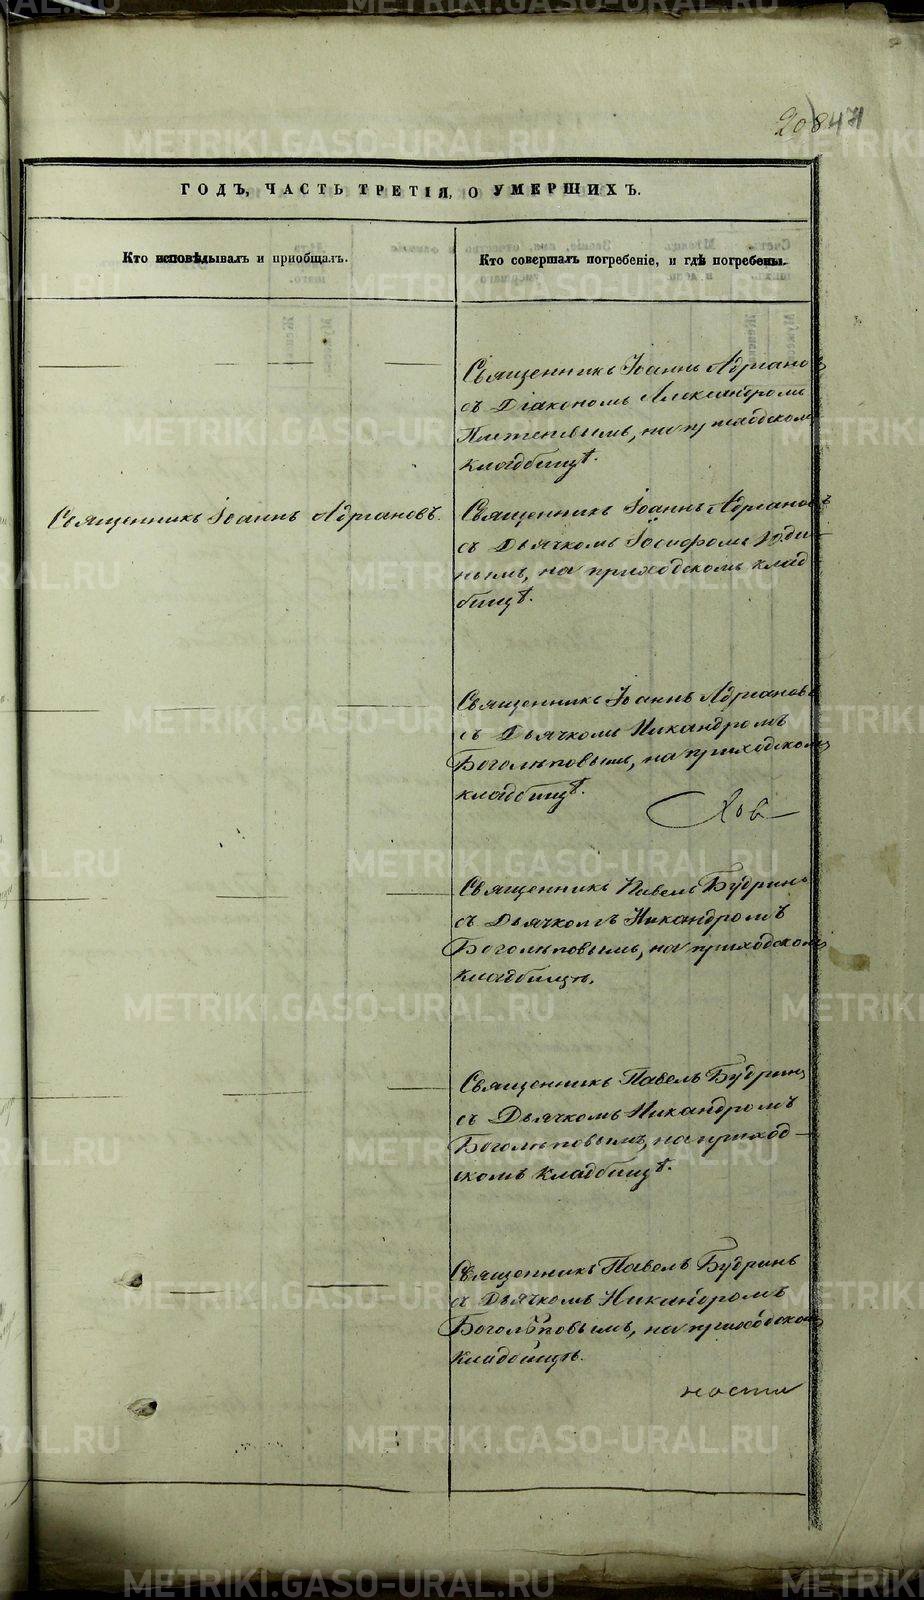 ГОДЪ, ЧАСТЬ ТРЕТІЯ, О УМЕРШИХЪ.
Кто исповѣдывалъ и пріобщалъ.
Кто совершалъ погребеніе, и гдѣ погребены.
Священникъ Іоаннъ Адріановъ
съ Діакономъ Александромъ
на приходскомъ
кладбищѣ.
Священникъ Іоаннъ Адріановъ.
Священникъ Іоаннъ Адріановъ
съ Дьячкомъ Іосифомъ
на приходскомъ клад
бищѣ.
Священникъ Іоаннъ Адріановъ
съ Дьячкомъ Никандромъ
Боголѣповымъ, на приходскомъ
кладбищѣ.
Священникъ Павелъ Будринъ
съ Дьячкомъ Никандромъ
Боголѣповымъ, на приходскомъ
кладбищѣ.
Священникъ Павелъ Будринъ
съ Дьячкомъ Никандромъ
Боголѣповымъ, на приход-
скомъ кладбищѣ.
Священникъ Павелъ Будринъ
съ Дьячкомъ Никандромъ
Боголѣповымъ, на приходскомъ
кладбищѣ.
ности
METRIKI.GASO-URAL.RU